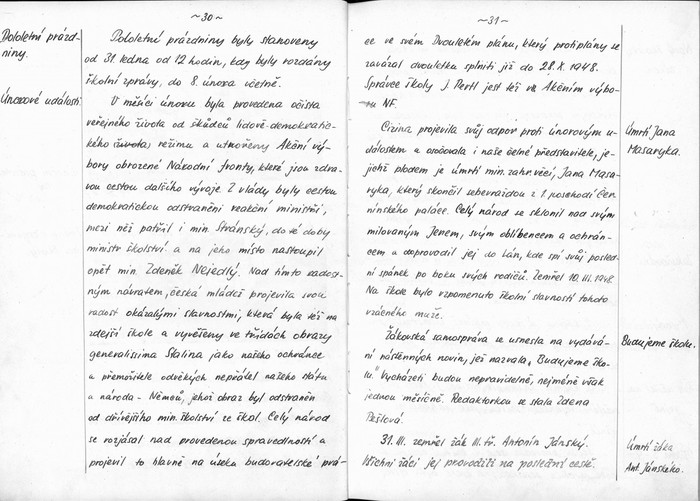 ~30~
Pololetní prázd-
niny.
Pololetní prázdniny byly stanoveny
od 31. ledna od 12 hodin, kdy byly rozdány
školní zprávy, do 8. února včetně.
Únorové události
V měsíci únoru byla provedena očista
veřejného života od škůdců lidově-demokratic-
kého života, režimu a utvořeny Akční vý-
bory obrozené Národní fronty, které jsou zdra-
vou cestou dalšího vývoje. Z vlády byly cestou
demokratickou odstraněni reakční ministři,
mezi něž patřil i min. Stránský, do té doby
ministr školství a na jeho místo nastoupil
opět min. Zdeněk Nejedlý. Nad tímto rados-
ným návratem, česká mládež projevila svou
radost okázalými slavnostmi, která byla též na
zdejší škole a vyvěšeny ve třídách obrazy
generalissima Stalina jako našeho ochránce
a přemožitele odvěkých nepřátel našeho státu
a národa - Němců, jehož obraz byl odstraněn
od dřívějšího min. školství ze škol. Celý národ
se rozjásal nad provedenou spravedlností a
projevil to hlavně na úseku budovatelské prá-
~31~
ce ve svém Dvouletém plánu, který protiplány se
zavázal dvouletku splniti již do 28. X. 1948.
Správce školy J. Pertl jest též v Akčním výbo-
ru NF.
Úmrtí Jana
Masaryka.
Cizina projevila svůj odpor proti únorovým u-
dálostem a osočovala i naše čelné představitele, je-
jichž plodem je úmrtí min. zahr. věcí, Jana Masa-
ryka, který skončil sebevraždou z 1. poschodí Čer-
nínského paláce. Celý národ se sklonil nad svým
milovaným Jenem, svým oblíbencem a ochrán-
cem a doprovodil jej do Lán, kde spí svůj posled-
ní spánek po boku svých rodičů. Zemřel 10. III. 1948.
Na škole bylo vzpomenuto školní slavností tohoto
vzácného muže.
Budujeme školu.
Žákovská samospráva se usnesla na vydává-
ní nástěnných novin, jež nazvala „Budujeme ško-
lu." Vycházeti budou nepravidelně, nejméně však
jednou měsíčně. Redaktorkou se stala Zdena
Pešlová.
Úmrtí žáka
Ant. Jánského.
31. III. zemřel žák III. tř. Antonín Jánský.
Všichni žáci jej provodili na poslední cestě.